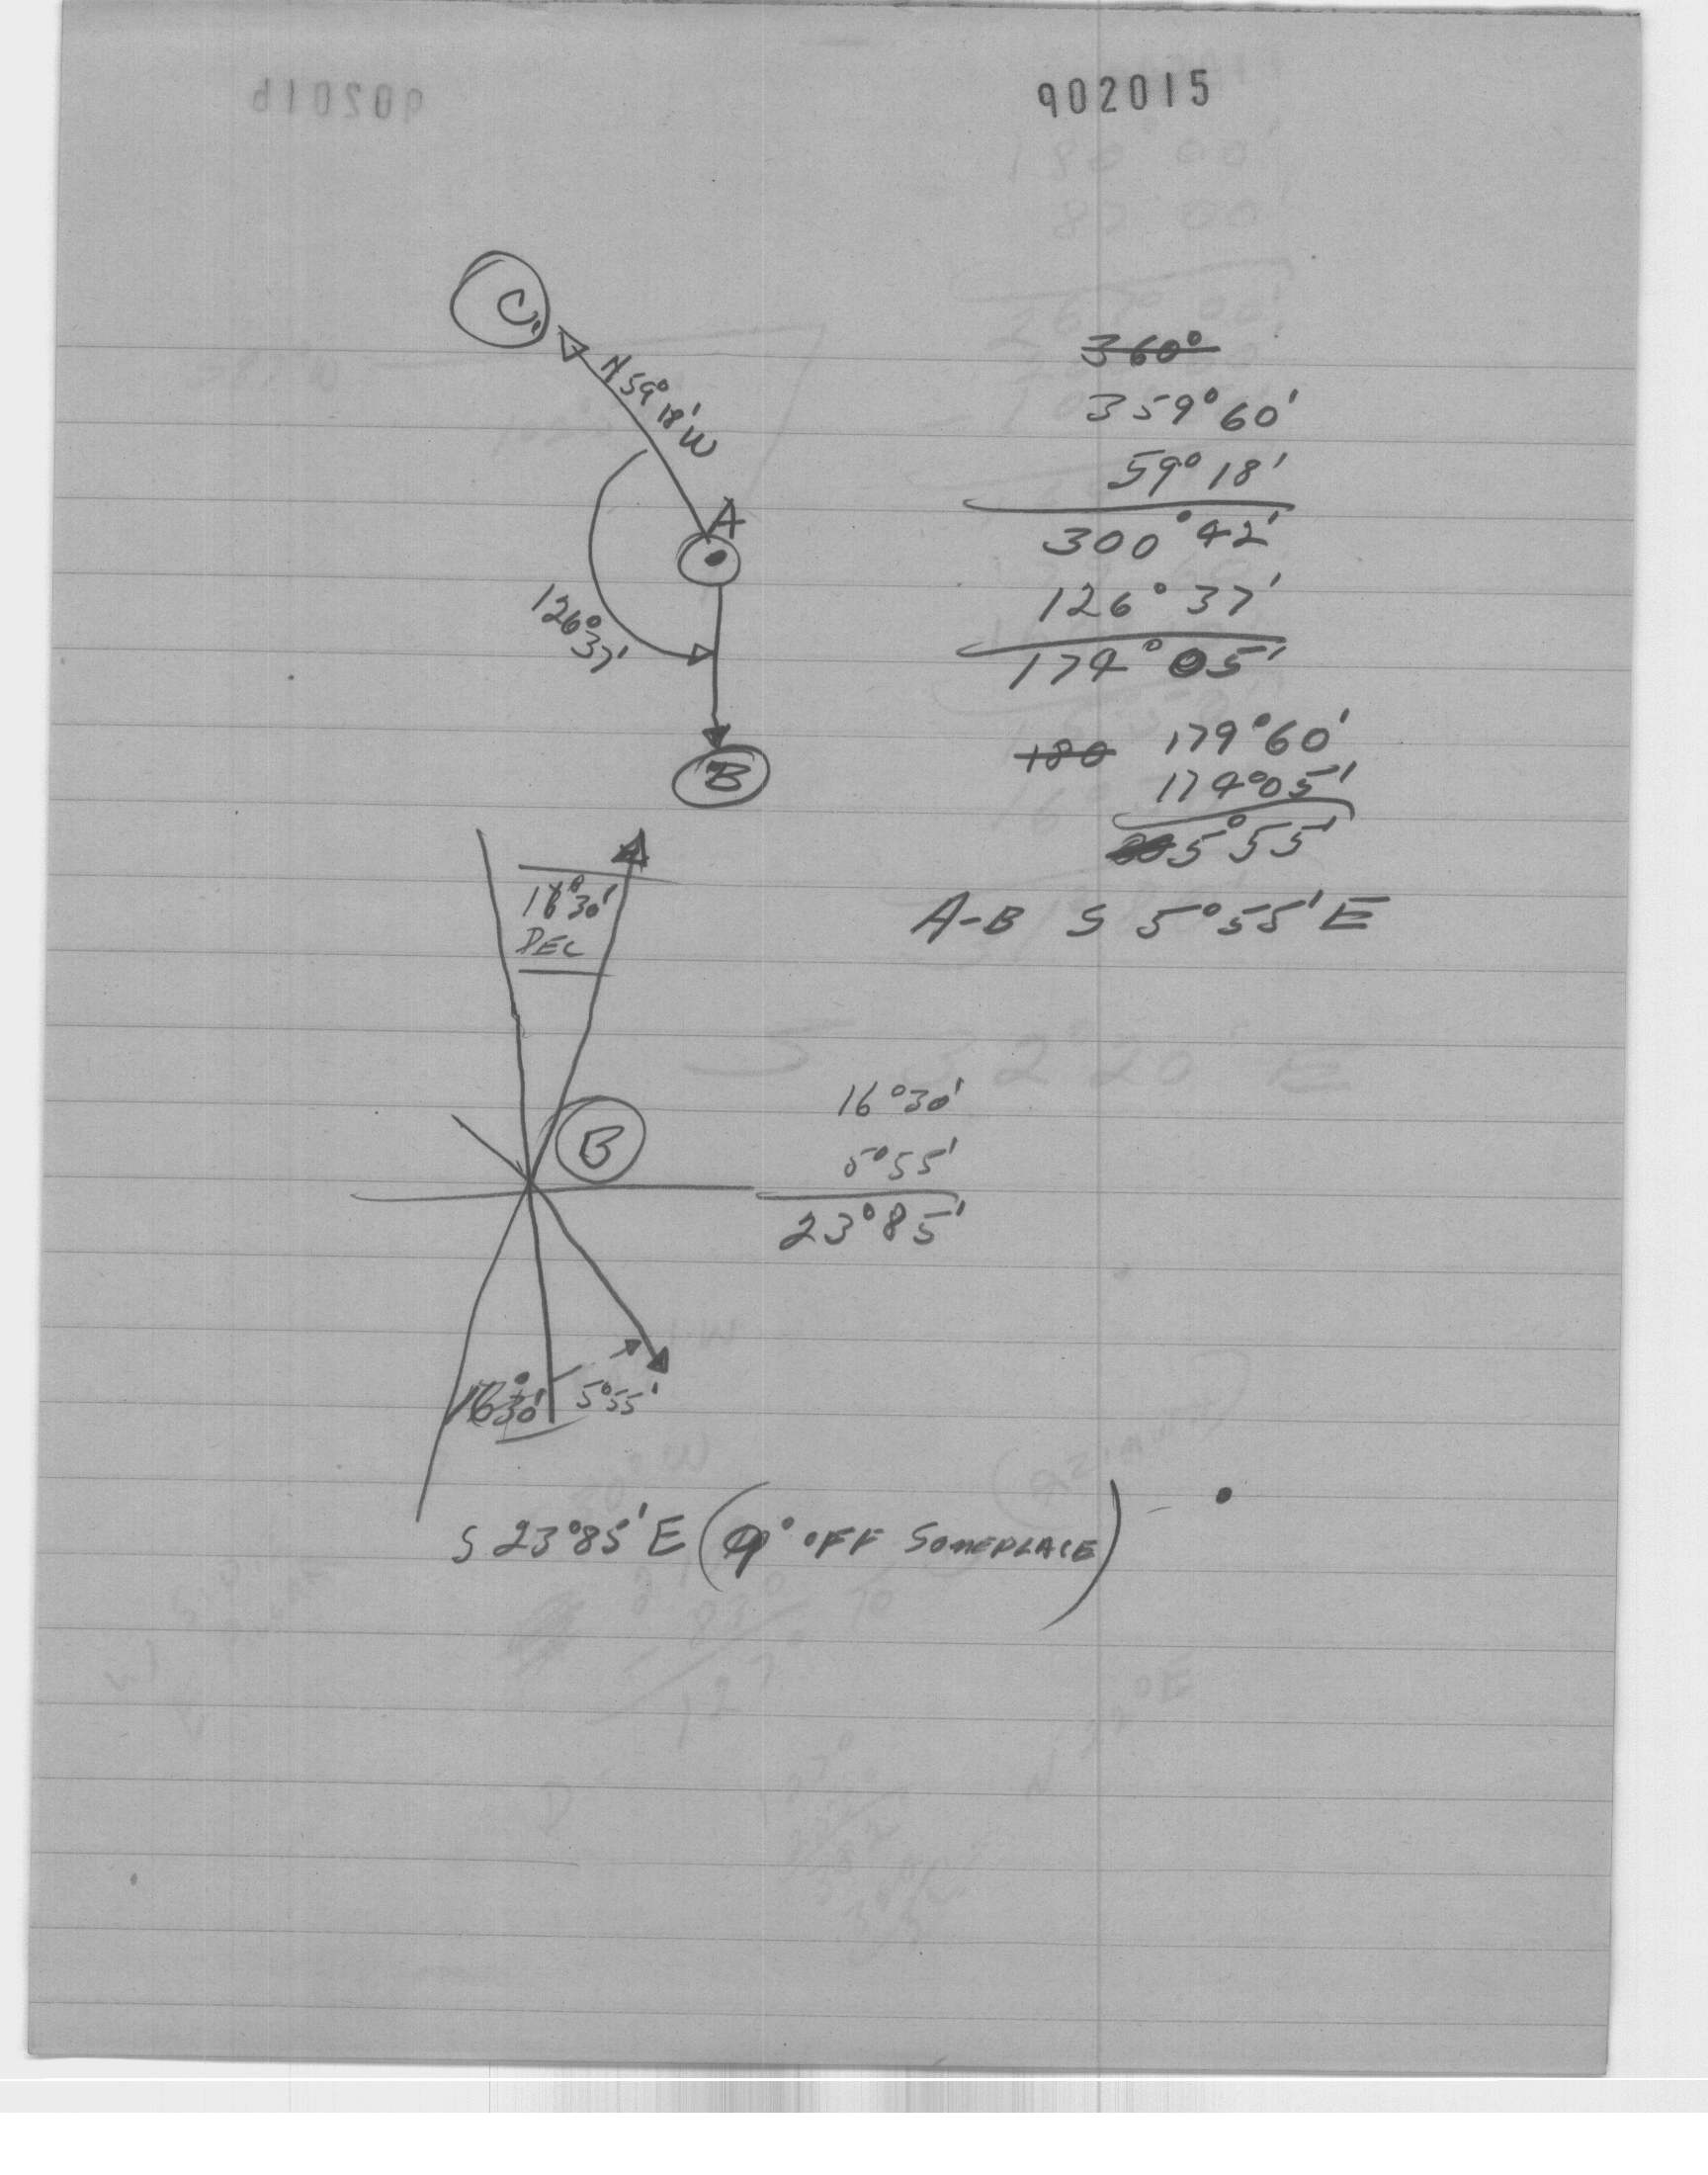 902015
C
N59°18'W
A
126°37'
B
360°
359°60'
59°18'
300°42'
126°37'
174°05'
180 179°60'
174°05'
5°55'
A-B S 5°55'E
30'
DEC
B
16°30'
5°55'
23°85'
16°30' 5°55'
S 23°85'E (9° OFF SOMEPLACE)